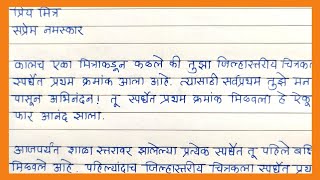 प्रिय मित्र
सप्रेम नमस्कार
कालच एका मित्राकडून कळले की तुझा जिल्हास्तरीय चित्रकला
स्पर्धेत प्रथम क्रमांक आला आहे. त्यासाठी सर्वप्रथम तुझे मन
पासून अभिनंदन! तू स्पर्धेत प्रथम क्रमांक मिळवला हे ऐकू
फार आनंद झाला.
आजपर्यंत शाळा स्तरावर झालेल्या प्रत्येक स्पर्धेत तू पहिले बक्षि
मिळवले आहे. पहिल्यांदाच जिल्हास्तरीय चित्रकला स्पर्धेत प्रथ